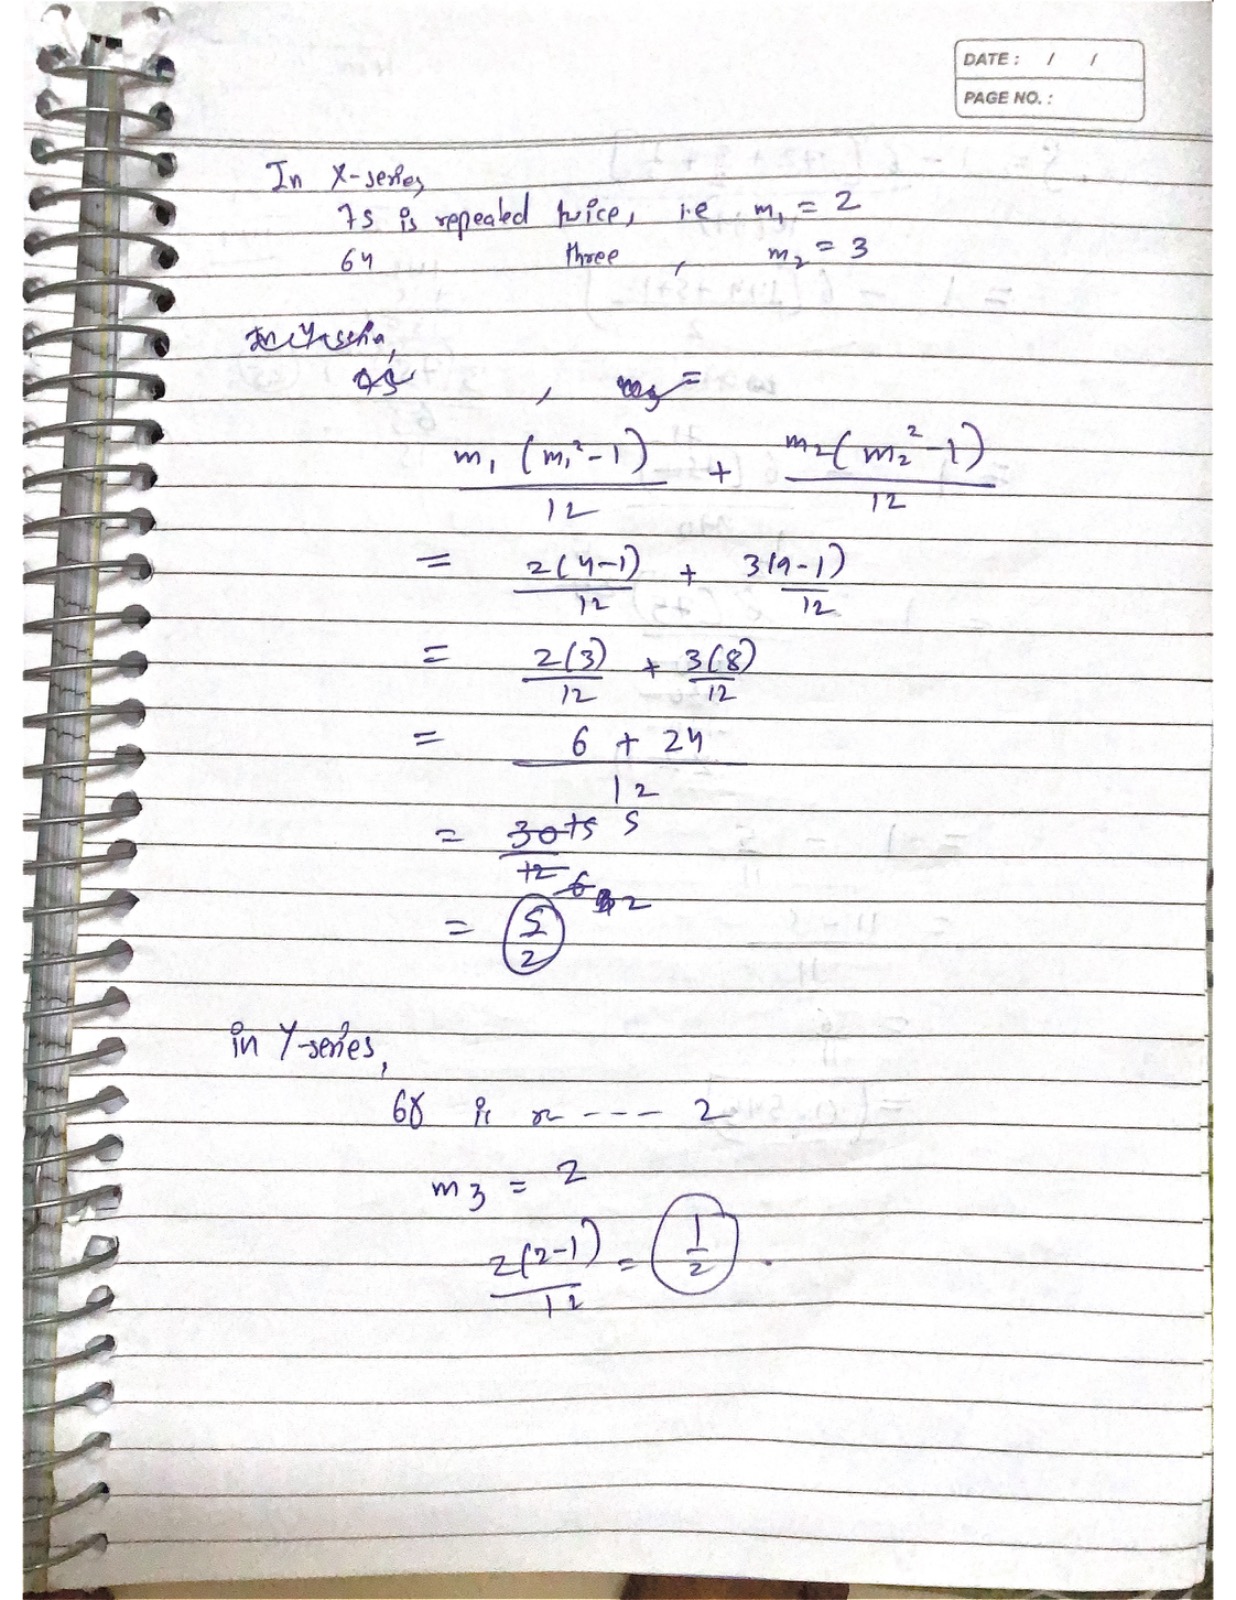 DATE : / /
PAGE NO. :
In X-series,
75 is repeated twice, i.e m₁ = 2
64 three , m₂ = 3
, m₃ =
m₁ (m₁² - 1) / 12 + m₂ (m₂² - 1) / 12
= 2(4-1) / 12 + 3(9-1) / 12
= 2(3) / 12 + 3(8) / 12
= 6 + 24 / 12
= 30 15 5 / 12 6 2
= 5/2
in Y-series,
68 is r ---- 2
m3 = 2
2(2-1) / 12 = 1/2 .